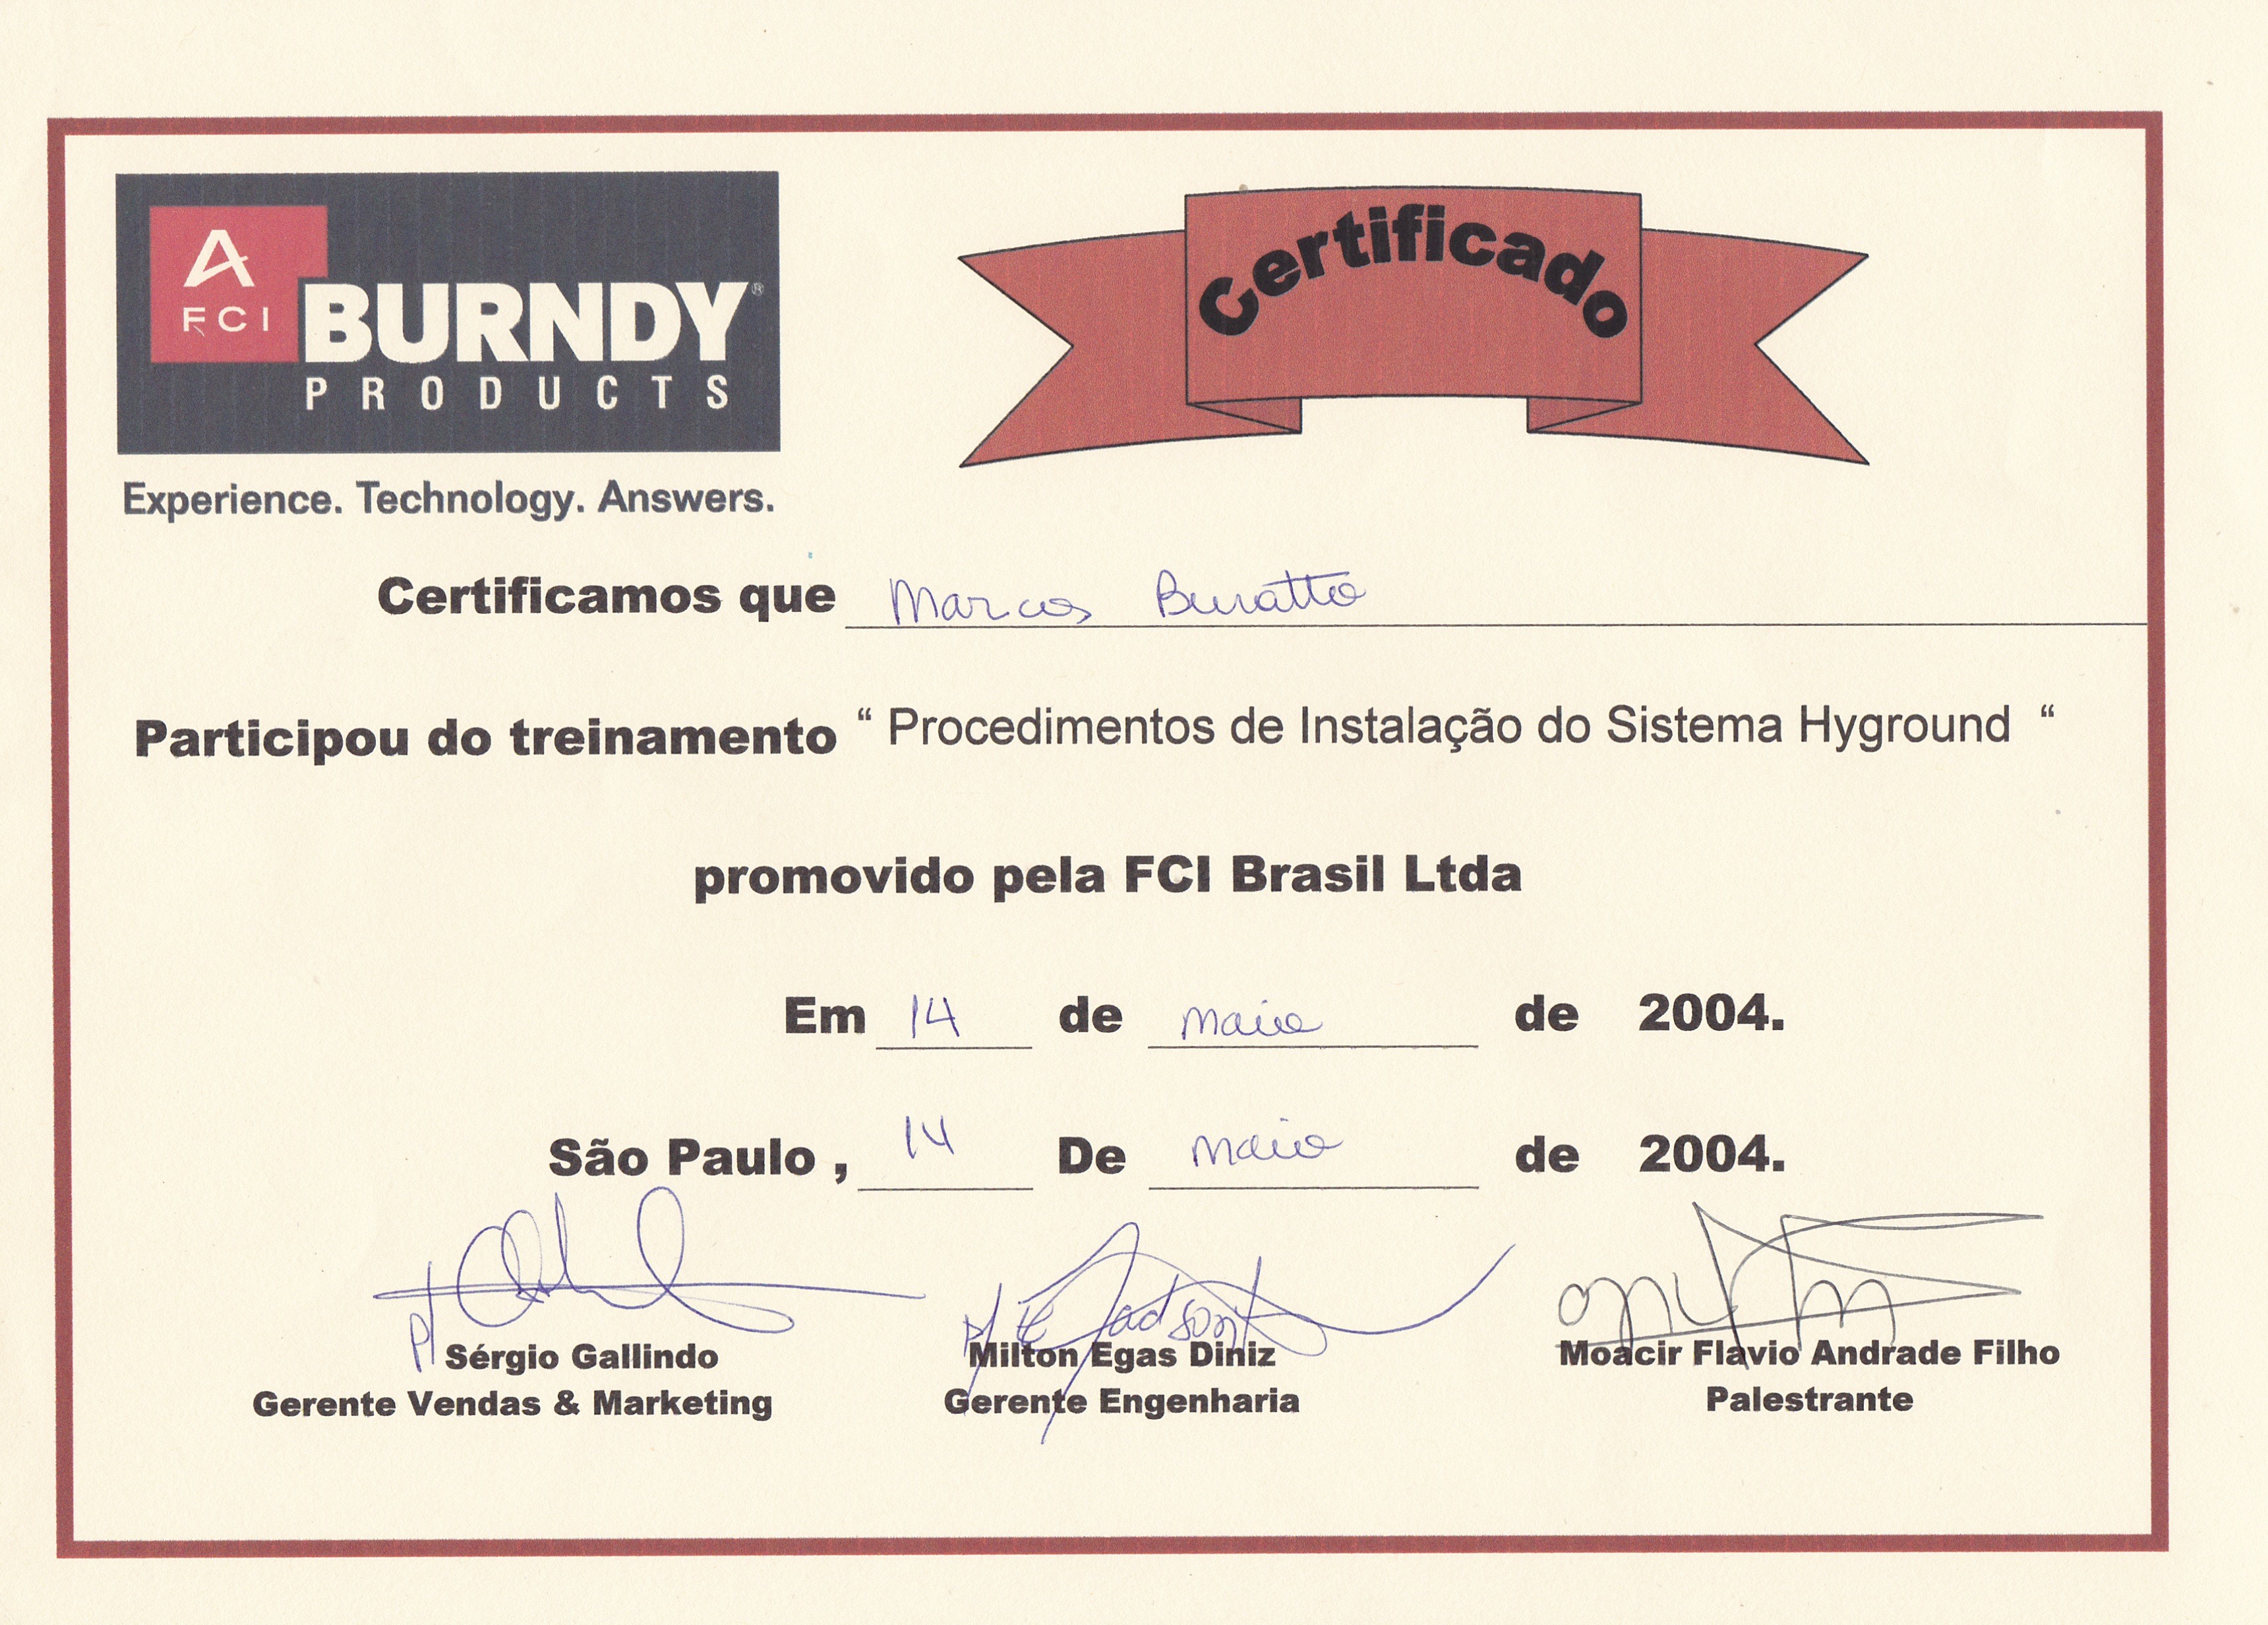 A
FCI
BURNDY®
PRODUCTS
Experience. Technology. Answers.
Certificado
Certificamos que Marcos Buratto
Participou do treinamento “ Procedimentos de Instalação do Sistema Hyground “
promovido pela FCI Brasil Ltda
Em 14 de maio de 2004.
São Paulo , 14 De maio de 2004.
p/
p/
Sérgio Gallindo
Gerente Vendas & Marketing
Milton Egas Diniz
Gerente Engenharia
Moacir Flavio Andrade Filho
Palestrante